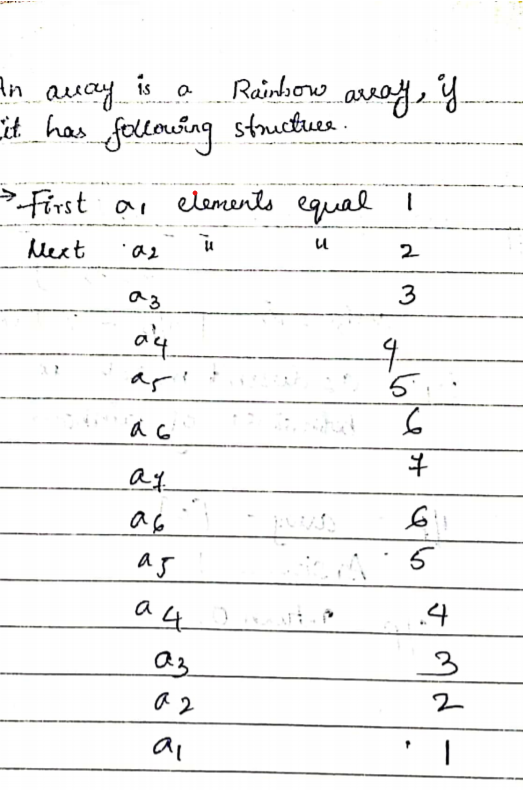 An array is a Rainbow array, if
it has following structure.
→ First a1 elements equal 1
Next a2 " " 2
a3 3
a4 4
a5 5
a6 6
a7 7
a6 6
a5 5
a4 4
a3 3
a2 2
a1 1